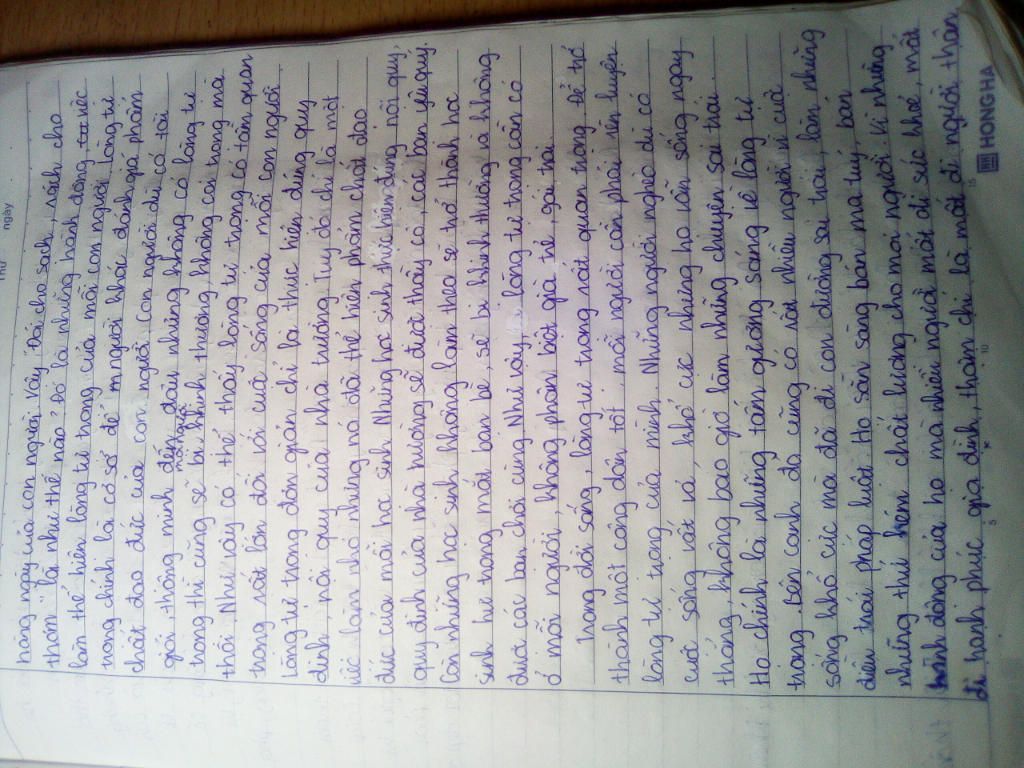 Thứ    ngày
hàng ngày của con người vậy. Đói cho sạch, rách cho
thơm là như thế nào? Đó là những hành động, việc
làm thể hiện lòng tự trọng của mỗi con người. Lòng tự
trọng chính là cơ sở để mnguời khác đánh giá phẩm
chất đạo đức của con người. Con người dù có tài
giỏi, thông minh đến mấy đi nữa nhưng không có lòng tự
trọng thì cũng sẽ bị khinh thường, không coi trọng mà
thôi. Như vậy có thể thấy lòng tự trọng có tầm quan
trọng rất lớn đối với cuộc sống của mỗi con người
Lòng tự trọng đơn giản chỉ là thực hiện đúng quy
định, nội quy của nhà trường. Tuy đó chỉ là một
việc làm nhỏ nhưng nó đã thể hiện phẩm chất đạo
đức của mỗi học sinh. Những học sinh thực hiện đúng nội quy,
quy định của nhà trường, sẽ được thầy cô, các bạn yêu quý.
Còn những học sinh không làm theo sẽ trở thành học
sinh hư trong mắt bạn bè, sẽ bị khinh thường và không
được các bạn chơi cùng. Như vậy, lòng tự trọng cần có
ở mỗi người, không phân biệt già trẻ, gái trai.
Trong đời sống, lòng tự trọng rất quan trọng. Để trở
thành một công dân tốt, mỗi người cần phải rèn luyện
lòng tự trọng của mình. Những người nghèo dù có
cuộc sống vất vả, khổ cực nhưng họ vẫn sống ngay
thẳng, không bao giờ làm những chuyện sai trái.
Họ chính là những tấm gương sáng về lòng tự
trọng. Bên cạnh đó cũng có rất nhiều người vì cuộc
sống khổ cực mà đã đi con đường sai trái, làm những
điều trái pháp luật. Họ sẵn sàng bán ma tuý, bán
những thứ kém chất lượng cho mọi người. Vì những
hành động của họ mà nhiều người mất đi sức khoẻ, mất
đi hạnh phúc gia đình, thậm chí là mất đi người thân
5    10    15
HONG HA